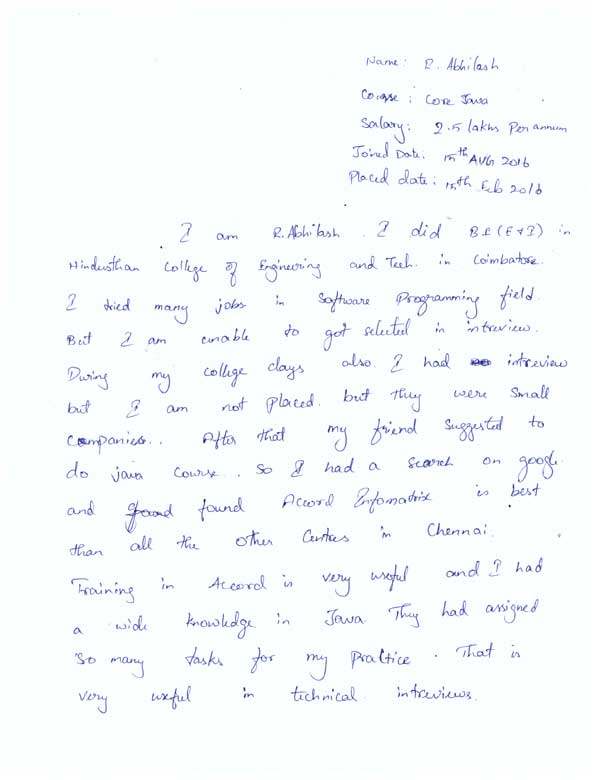 Name: R. Abhilash
Course: Core Java
Salary: 2.5 lakhs Per annum
Joined Date: 15th AUG 2016
Placed date: 15th Feb 2016
I am R.Abhilash. I did B.E (E&I) in
Hindusthan College of Engineering and Tech. in Coimbatore.
I tried many jobs in Software Programming field.
But I am unable to got selected in intreview.
During my college days also. I had intreview
but I am not placed. but they were small
Companies.. After that my friend suggested to
do java course.. So I had a search on google.
and found Accord Infomatrix is best
than all the other Centres in Chennai.
Training in Accord is very useful and I had
a wide knowledge in Java They had assigned
so many tasks for my practice. That is
very useful in technical intreviews.